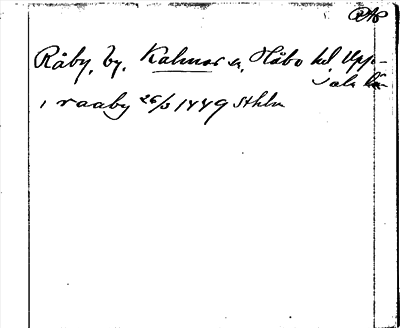 Råby, by, Kalmar sn, Håbo hd Upp-
sala län
i raaby 26/3 1449 Sthlm